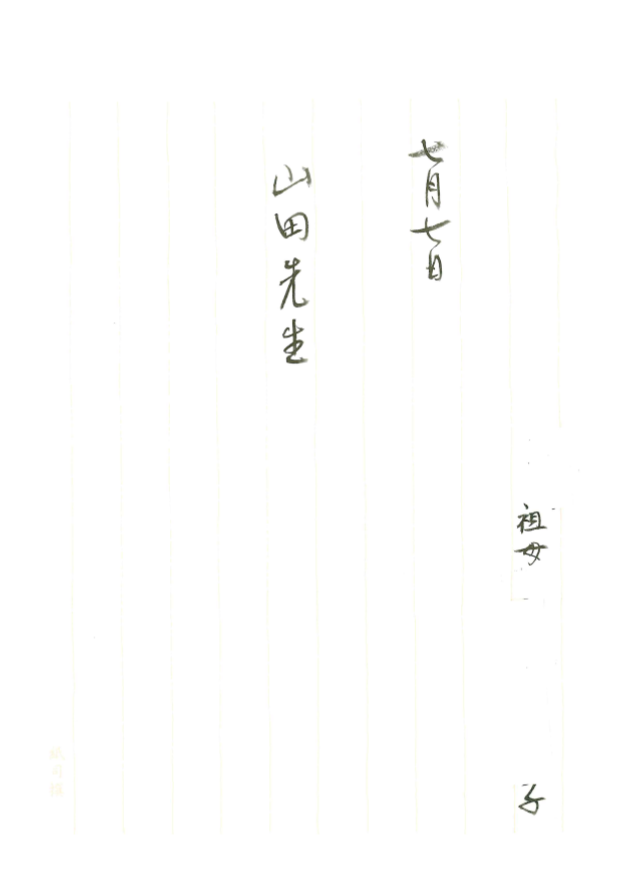 祖母
子
七月七日
山田先生